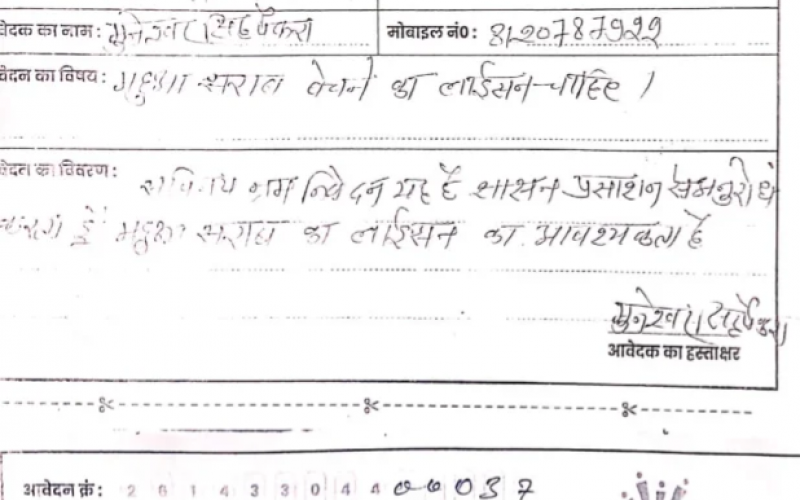 वेदक का नाम: मुनेश्वर सिंह पैकरा मोबाइल नं0: 8120787922
वेदन का विषय: महुआ सराब बेचने का लाईसन चाहिए।
वेदन का विवरण:
सविनय नम्र निवेदन यह है शासन प्रसाशन से अनुरोध
हूँ महुआ सराब का लाईसन का आवश्यकता है
मुनेश्वर सिंह पैकरा
आवेदक का हस्ताक्षर
आवेदन क्रं: 2 0 1 4 3 3 0 4 4 0 0 0 3 7